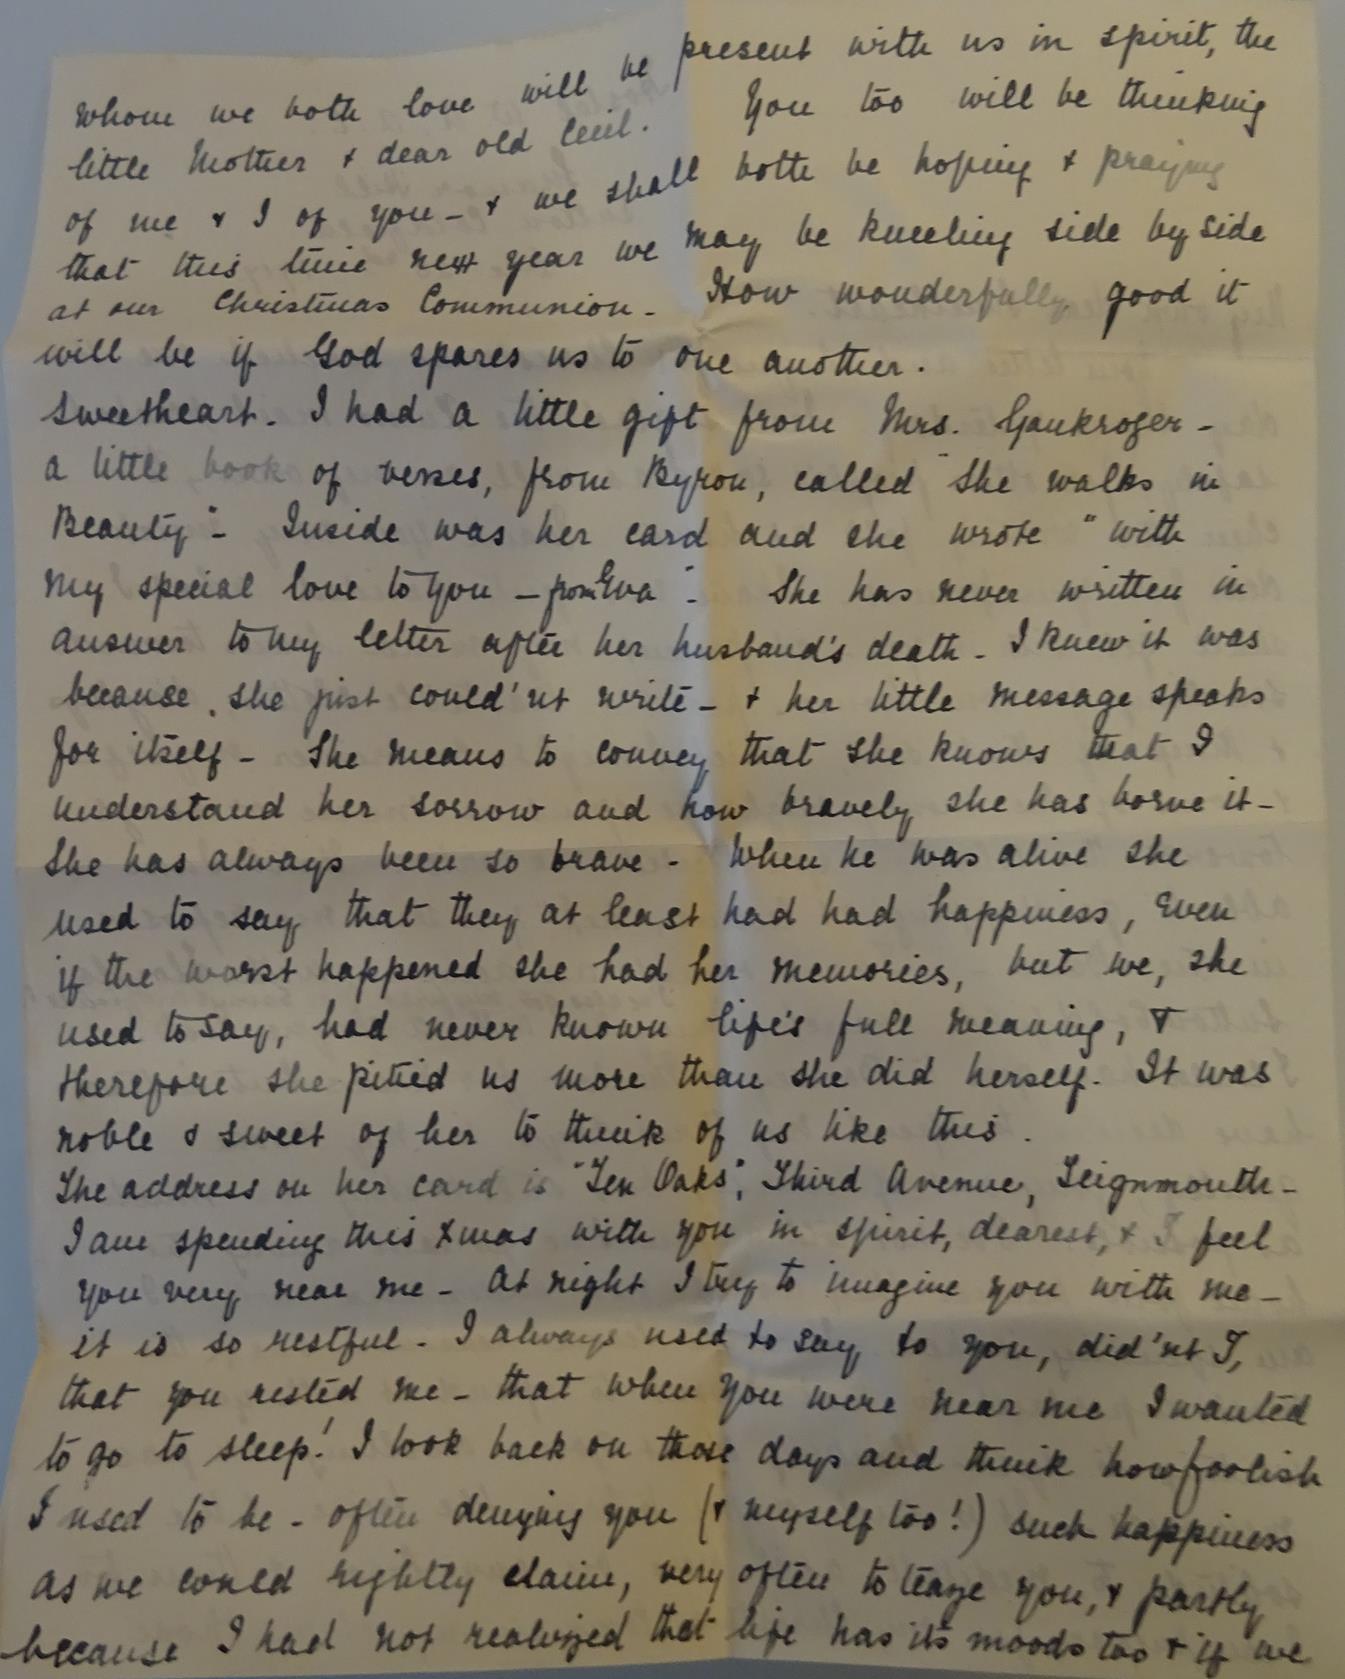 whom we both love will be present with us in spirit, the
little Mother & dear old Cecil. You too will be thinking
of me & I of you - & we shall both be hoping & praying
that this time next year we may be kneeling side by side
at our Christmas Communion - How wonderfully good it
will be if God spares us to one another.
Sweetheart. I had a little gift from Mrs. Gaukroger -
a little book of verses, from Byron, called "She walks in
Beauty" - Inside was her card and she wrote "with
my special love to you - from Eva" - She has never written in
answer to my letter after her husband's death - I knew it was
because she just could'nt write - & her little message speaks
for itself - She means to convey that she knows that I
understand her sorrow and how bravely she has borne it -
She has always been so brave - When he was alive she
used to say that they at least had had happiness, even
if the worst happened she had her memories, but we, she
used to say, had never known life's full meaning, &
therefore she pitied us more than she did herself. It was
noble & sweet of her to think of us like this.
The address on her card is "Ten Oaks", Third Avenue, Teignmouth -
I am spending this Xmas with you in spirit, dearest, & I feel
you very near me - At night I try to imagine you with me -
it is so restful - I always used to say to you, did'nt I,
that you rested me - that when you were near me I wanted
to go to sleep! I look back on those days and think how foolish
I used to be - often denying you (& myself too!) such happiness
as we could rightly claim, very often to teaze you, & partly
because I had not realized that life has its moods too & if we